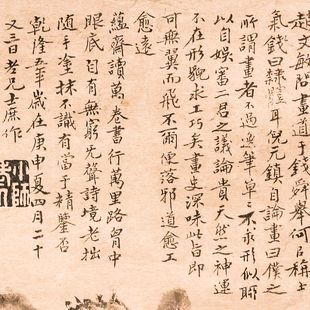 趙文敏問畫道于錢舜舉何㠯稱士
氣錢曰隸體耳倪元鎮自論畫曰僕之
所謂畫者不過逸筆草草不求形似聊
以自娛審二君之議論貴天然之神運
不在形貌求工巧矣畫史深味此旨即
可無翼而飛不爾便落邪道愈工
愈遠
蘊齋讀萬卷書行萬里路胷中
眼底自有無窮先聲詩境老拙
隨手塗抹不識有當于精鑒否
乾隆五年歲在庚申夏四月二十
又三日老兄士庶作